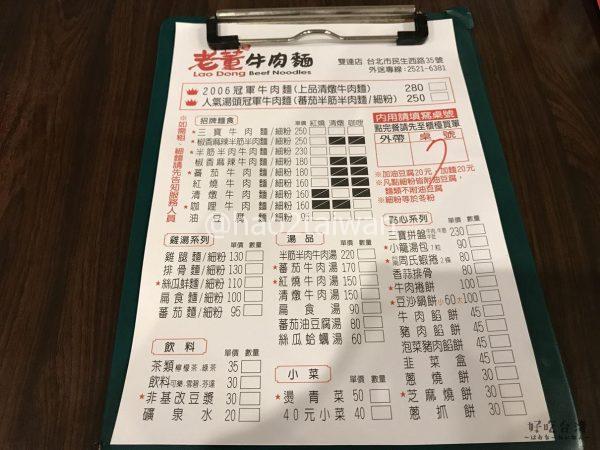 老董牛肉麵
Lao Dong Beef Noodles
雙連店 台北市民生西路35號
外送專線:2521-6381
2006冠軍牛肉麵(上品清燉牛肉麵) 280
人氣湯頭冠軍牛肉麵(蕃茄半筋半肉麵/細粉) 250
※如需粗、細麵請先告知服務人員
招牌麵食 單價 紅燒 清燉 咖哩
三寶牛肉麵/細粉 250
椒香麻辣半筋半肉麵
半筋半肉牛肉麵/細粉
椒香麻辣牛肉麵
蕃茄牛肉麵/細粉
紅燒牛肉麵/細粉
清燉牛肉麵/細粉 160
咖哩牛肉麵/細粉 160
油豆腐麵/細粉
內用請填寫桌號
點完餐請先至櫃檯買單
外帶 桌號
7
※加油豆腐20元/加麵20元
※凡點細粉皆附油豆腐,
麵類不附油豆腐
※細粉等於冬粉
雞湯系列 單價 數量
雞腿麵/細粉 130
排骨麵/細粉 130
絲瓜鮮麵/細粉 110
扁食麵/細粉 100
蕃茄麵/細粉 95
湯品 單價 數量
半筋半肉牛肉湯 220
蕃茄牛肉湯 170
紅燒牛肉湯 150
清燉牛肉湯 150
扁食湯 90
蕃茄油豆腐湯 60
絲瓜蛤蠣湯 60
點心系列 單價 數量
三寶拼盤 230
小籠湯包7粒 90
周氏蝦捲2條
香蒜排骨
牛肉捲餅
豆沙鍋餅 小60 大100
牛肉餡餅 45
豬肉餡餅 45
泡菜豬肉餡餅
韭菜盒 45
蔥燒餅
芝麻燒餅
蔥抓餅
飲料 單價 數量
茶類 檸檬茶.綠茶 35
飲料 可樂.雪碧.芬達 30
非基改豆漿 30
礦泉水 20
小菜 單價 數量
燙青菜 50
40元小菜 40
@hao2taiwan
好吃台灣
～はおちーたいわん～